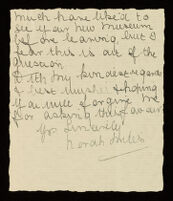 much have like'd to
see your new museum
before leaving but I
fear this is out of the
question.
With my kindest regards
& best wishes & hoping
you will forgive me
for asking this favour
yrs sincerely
Norah